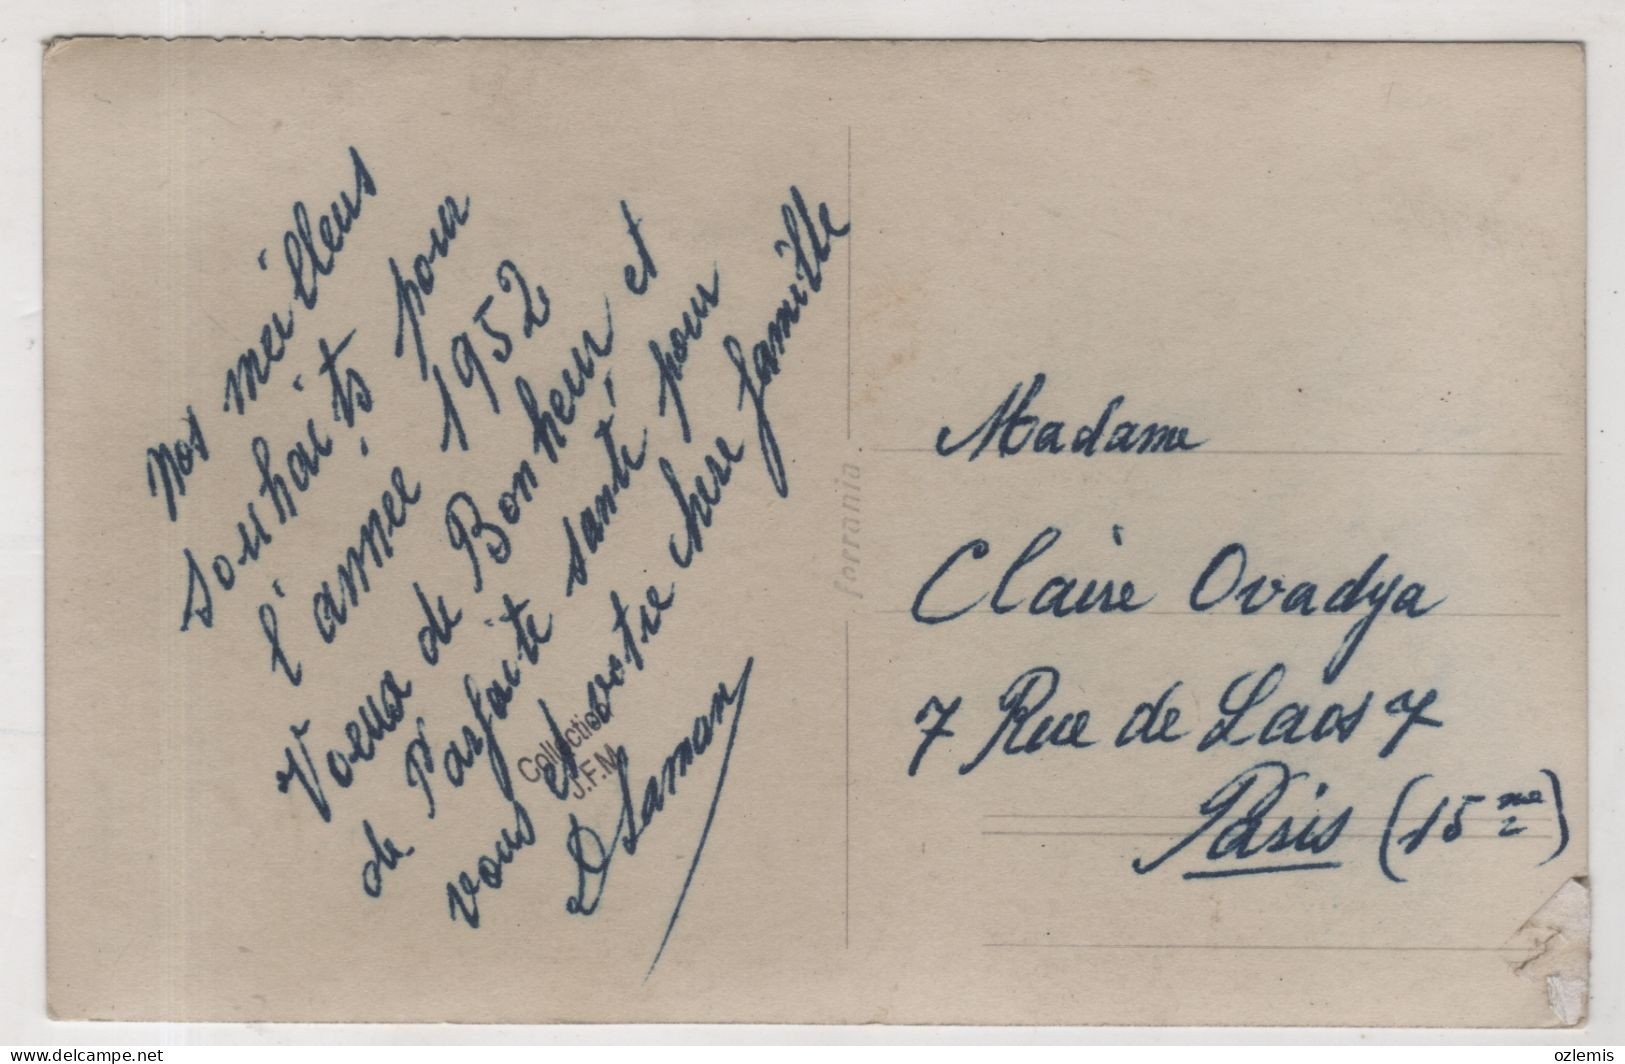 Nos meilleurs
souhaits pour
l'année 1952
Voeux de Bonheur et
de Parfaite santé pour
vous et votre chere famille
Collection
J.F.M
ferrania
Madame
Claire Ovadya
7 Rue de Laos 7
Paris (15me)
delcampe.net
ozlemis